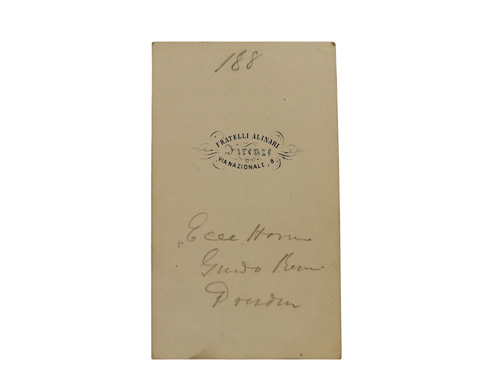 188
FRATELLI ALINARI
Firenze
VIA NAZIONALE, 8.
Ecce Homo
Guido Reni
Dresden